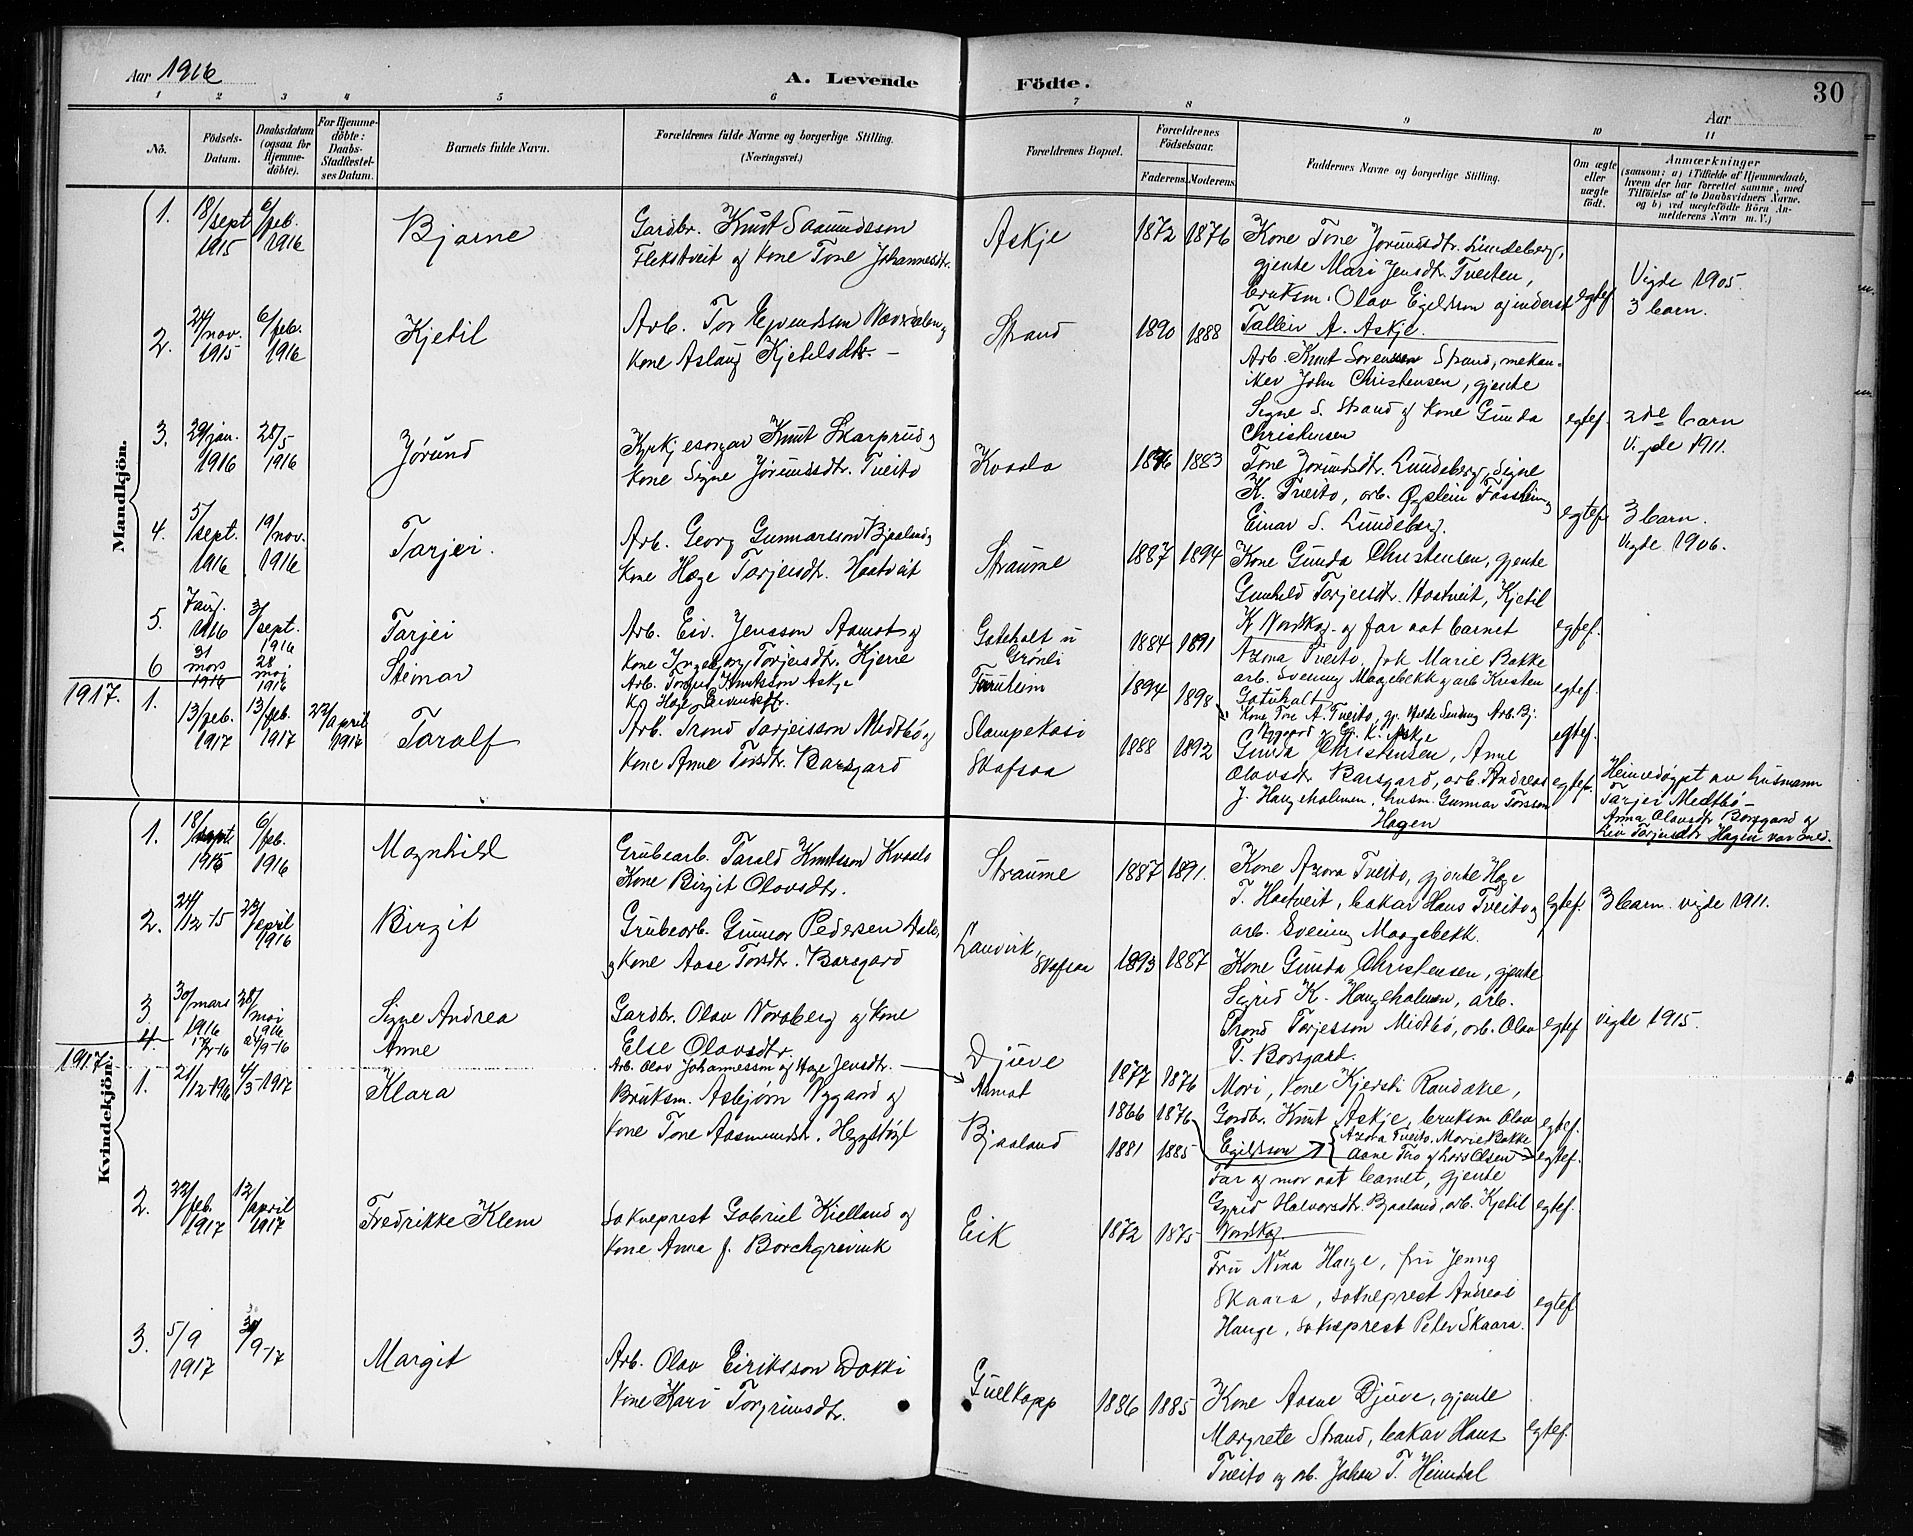 Aar 1916
A. Levende Födte.
30
Aar
1 2 3 4 5 6 7 8 9 10 11
Nô.
Födsels-Datum.
Daabsdatum (ogsaa for Hjemme-döbte).
For Hjemme-döbte: Daabs-Stadfæstel-ses Datum.
Barnets fulde Navn.
Forældrenes fulde Navne og borgerlige Stilling.
(Næringsvei.)
Forældrenes Bopæl.
Forældrenes Födselsaar.
Faderens. Moderens.
Faddernes Navne og borgerlige Stilling.
Om ægte eller uægte födt.
Anmærkninger
(saasom: a) i Tilfælde af Hjemmedaab, hvem der har forrettet samme, med Tilföielse af to Daabsvidners Navne. og b) ved uægtefödte Börn Anmelderens Navn m. V.)
Mandkjön.
1. 18/sept 1915 6/feb. 1916 Bjarne
Gardbr. Knut Saamundsson
Flekstveit og kone Tone Johannesdtr.
Askje 1872 1876
Kone Tone Jorundsdtr. Lundeberg,
gjente Mari Jensdtr. Tveiten,
bruksm. Olav Egilsson og inderst
Talleiv A. Askje.
egtef.
Vigde 1905.
3 barn.
2. 24/nov. 1915 6/feb. 1916 Kjetil
Arb. Tor
kone Aslaug Kjetilsdtr. –
Strand 1890 1888
Arb. Knut Sorensson Strand, mekan-
iker John Christensen, gjente
Signe S. Strand og kone Gunda
Christensen
egtef.
2de barn
Vigde 1911.
3. 29/jan. 1916 28/5 1916 Jørund
Kyrkjesongar Knut Skarprud og
kone Signe Jørundsdtr. Tveito
Kvaala 1876 1883
Tone Jorundsdtr. Lundeberg, Signe
K. Tveito, arb. Øystein Fossheim og
Einar S. Lundeberg.
egtef.
3 barn.
Vigde 1906.
4. 5/sept. 1916 19/nov. 1916 Tarjei.
Arb. Georg Gunnarsson Bjaaland og
kone Hæge Tarjeisdtr. Hostveit
Straume 1887 1894
Kone Gunda Christensen, gjente
Gunhild Tarjeisdtr. Hostveit, Kjetil
K Nordskog og far aat barnet
egtef.
5. 7/aug. 1916 3/sept. 1916 Tarjei
Arb. Eiv. Jensson Aamot og
kone Ingeborg Torjeisdtr. Hjerre
Gateholt u Grønli 1884 1891
Azora Tveito, Joh Marie Bakke
arb. Sveinung Maagebekk og arb Kristen
Gateholt
egtef.
6 31 mars 1916 28 mai 1916 Steinar
Arb. Torgeir Knutsson Askje
K. Hæge Eivindsdtr.
Furuheim 1894 1898
Kone Tone A. Tveito,
egtef.
1917. 1. 13/feb. 1917 13/feb. 1917 22/april 1916 Taralf
Arb. Trond Tarjeisson Midtbø og
kone Anne Torsdtr. Borsgard
Stampekasi
Skafsaa 1888 1892
Gunda Christensen, Anne
Olavsdtr Barsgard, arb. Andreas
J. Haugeholmen, husm. Gunnar Torsson
Hagen
egtef.
Heimedøypt av husmann
Tarjei Midtbø –
Anna Olavsdtr Borsgard og
Liv Tarjeisdtr Hagen var vitne.
Kvindekjön.
1. 18/sept 1915 6/feb. 1916 Magnhild
Grubearb. Tarald Knutsson Kvaalo
Kone Birgit Olavsdtr.
Straume 1887 1891.
Kone Azora Tveito, gjente Hæge
T. Hostveit, bakar Hans Tveito og
arb. Sveinung Maagebekk.
egtef.
3 barn. vigde 1911.
2. 24/12 15 23/april 1916 Birgit
Grubearb. Gunnar Pedersen
og kone Aase Torsdtr. Borsgard
Landvik, Skafsaa 1893 1887
Kone Gunda Christensen, gjente
Sigrid K. Haugeholmen, arb.
Trond Torjesson Midtbø, arb. Olav
T. Borsgard.
egtef
vigde 1915.
3 30/mars 1916 28/mai 1916 Signe Andrea
Gardbr. Olav Norsberg og kone
Else Olavsdtr.
Djuve 1877 1876
Mori, kone Kjersti Raudaae,
Gardbr. Knut Askje, bruksm Olav
Egilsson
egtef.
4. 24/9-16 Anne
Arb. Olav Johannesson og Hæge Jensdtr. –
Aamot 1866 1876
Azora Tveito. Marie Bakke
Aane Tho og Lars Olsen
egtef.
1917. 1. 21/12 1916 4/3-1917 Klara
Bruksm. Asbjørn Nygaard og
kone Tone Aasmundsdtr. Heggtøyl
Bjaaland 1881 1885
Far og mor aat barnet, gjente
Gyrid Halvorsdtr. Bjaaland, arb. Kjetil
Nordskog.
egtef.
2. 22/feb. 1917 12/april 1917 Fredrikke Klem
Sokneprest Gabriel Kielland og
kone Anna f. Borchgrevink
Eik 1872 1875
Fru Nina Hauge, fru Jenny
Skaara, sokneprest Andreas
Hauge, sokneprest Peter Skaara.
egtef
3. 5/9 1917 30/9-17 Margit
Arb. Olav Eiriksson Dokki
kone Kari Torgrimsdtr.
Gullkopp 1886 1885
Kone Aasne Djuve, gjente
Margrete Strand, bakar Hans
Tveito og arb. Johan T. Heimdal
egtef.